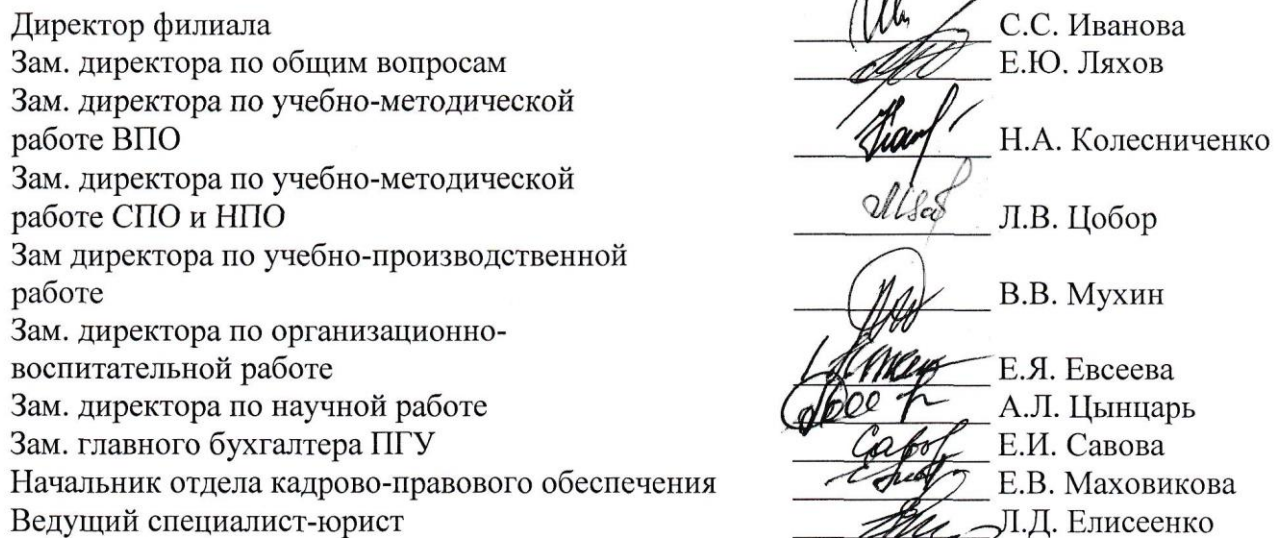 Директор филиала С.С. Иванова
Зам. директора по общим вопросам Е.Ю. Ляхов
Зам. директора по учебно-методической
работе ВПО Н.А. Колесниченко
Зам. директора по учебно-методической
работе СПО и НПО Л.В. Цобор
Зам директора по учебно-производственной
работе В.В. Мухин
Зам. директора по организационно-
воспитательной работе Е.Я. Евсеева
Зам. директора по научной работе А.Л. Цынцарь
Зам. главного бухгалтера ПГУ Е.И. Савова
Начальник отдела кадрово-правового обеспечения Е.В. Маховикова
Ведущий специалист-юрист Л.Д. Елисеенко